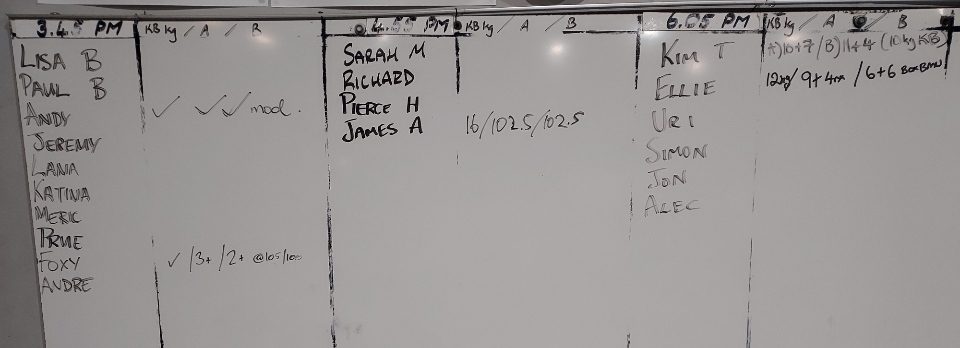 3.45 PM KB kg / A / B
LISA B
PAUL B
ANDY ✓ ✓✓ mod.
JEREMY
LANA
KATINA
MERIC
PRUE
FOXY ✓ /3+ /2+ @105/100
ANDRE
4.55 PM KB kg / A / B
SARAH M
RICHARD
PIERCE H
JAMES A 16/102.5/102.5
6.05 PM KB kg / A / B
KIM T A) 10+7 / B) 11+4 (10 kg KB)
ELLIE 12kg / 9+4 / 6+6 BOX
URI
SIMON
JON
ALEC